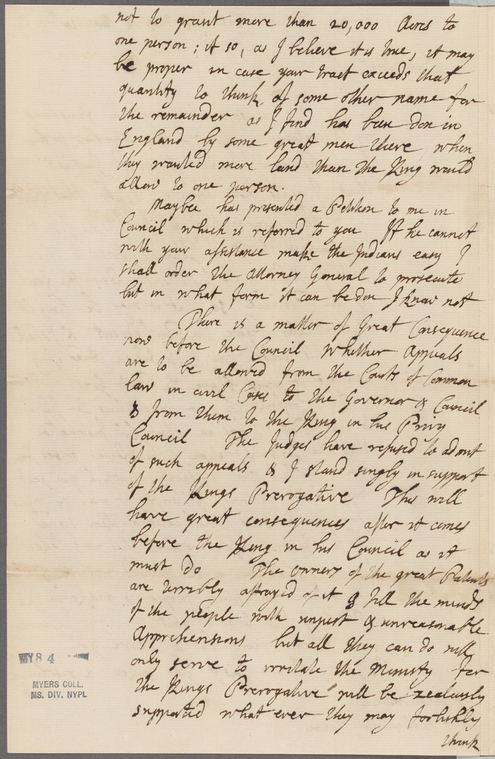 not to grant more than 20,000 Acres to
one person; if so, as I believe it is true, it may
be proper in case your tract exceeds that
quantity to think of some other name for
the remainder as I find has been don in
England by some great men there when
they wanted more land than the King would
allow to one person.
Maybee has presented a Petition to me in
Council which is referred to you If he cannot
with your assistance make the Indians easy I
shall order the Attorney General to prosecute
but in what form it can be don I know not
There is a matter of Great Consequence
now before the Council Whether Appeals
are to be allowed from the Courts of Common
law in civil Cases to the Governor & Council
& from them to the King in his Privy
Council The Judges have refused to admit
of such appeals & I stand singly in support
of the Kings Prerogative This will
have great consequences after it comes
before the King in his Council as it
must do The owners of the great Patents
are terribly affrayed of it & fill the minds
of the people with unjust & unreasonable
Apprehensions but all they can do will
only serve to irritate the Ministry for
the Kings Prerogative will be zealously
supported what ever they may foolishly
think
84
MYERS COLL.
MS. DIV. NYPL